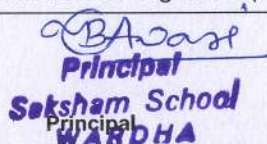 Principal
Saksham School
Principal
WARDHA